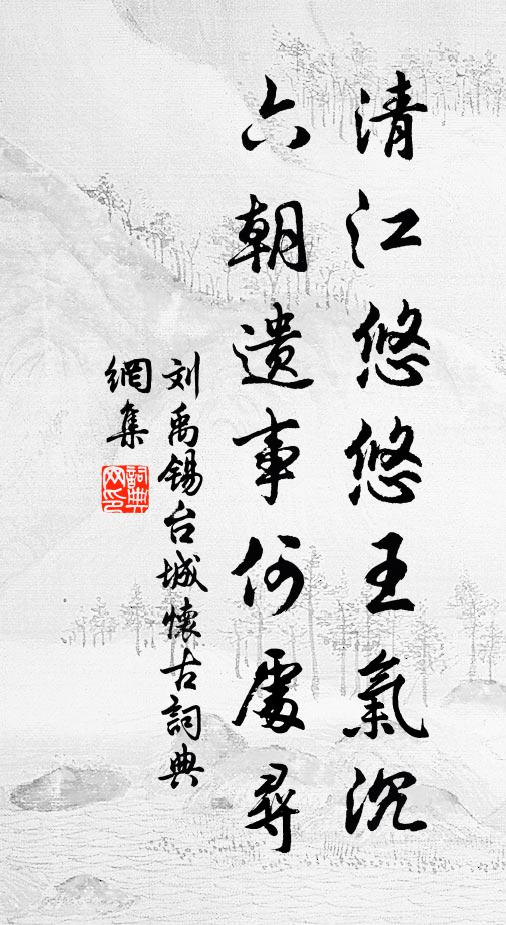 清江悠悠王氣沉
六朝遺事何處尋
刘禹錫台城懷古詞典
網集
詞典
网印